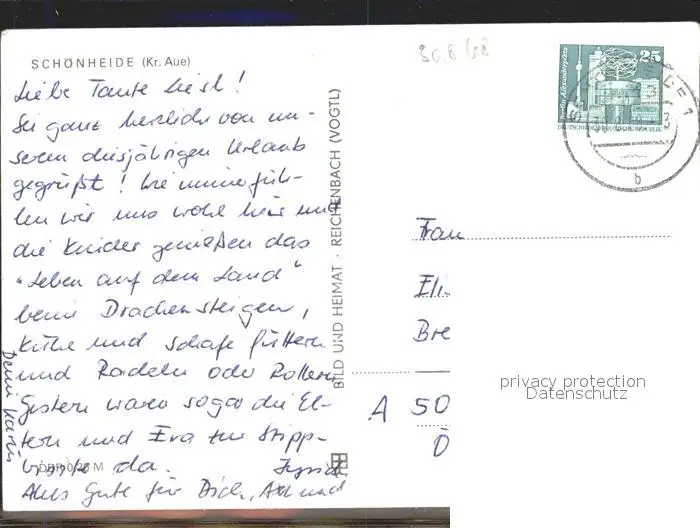 SCHÖNHEIDE (Kr. Aue)
Liebe Tante Liesl!
Sei ganz herzlich von un-
serem diesjährigen Urlaub
gegrüßt! Wie immer füh-
len wir uns wohl hier und
die Kinder genießen das
"Leben auf dem Land"
beim Drachensteigen,
Kühe und Schafe füttern
und Radeln oder Rollern
Gestern waren sogar die El-
tern und Eva zur Stipp-
visite da. Ingrid
Alles Gute für Dich, Axel und
Deine Karin
DDR 0,20 M
BILD UND HEIMAT · REICHENBACH (VOGTL)
30.8
25
Berlin, Alexanderplatz
DEUTSCHE DEMOKRATISCHE REPUBLIK
b
Frau
Eli
Bre
A 50
Ö
privacy protection
Datenschutz